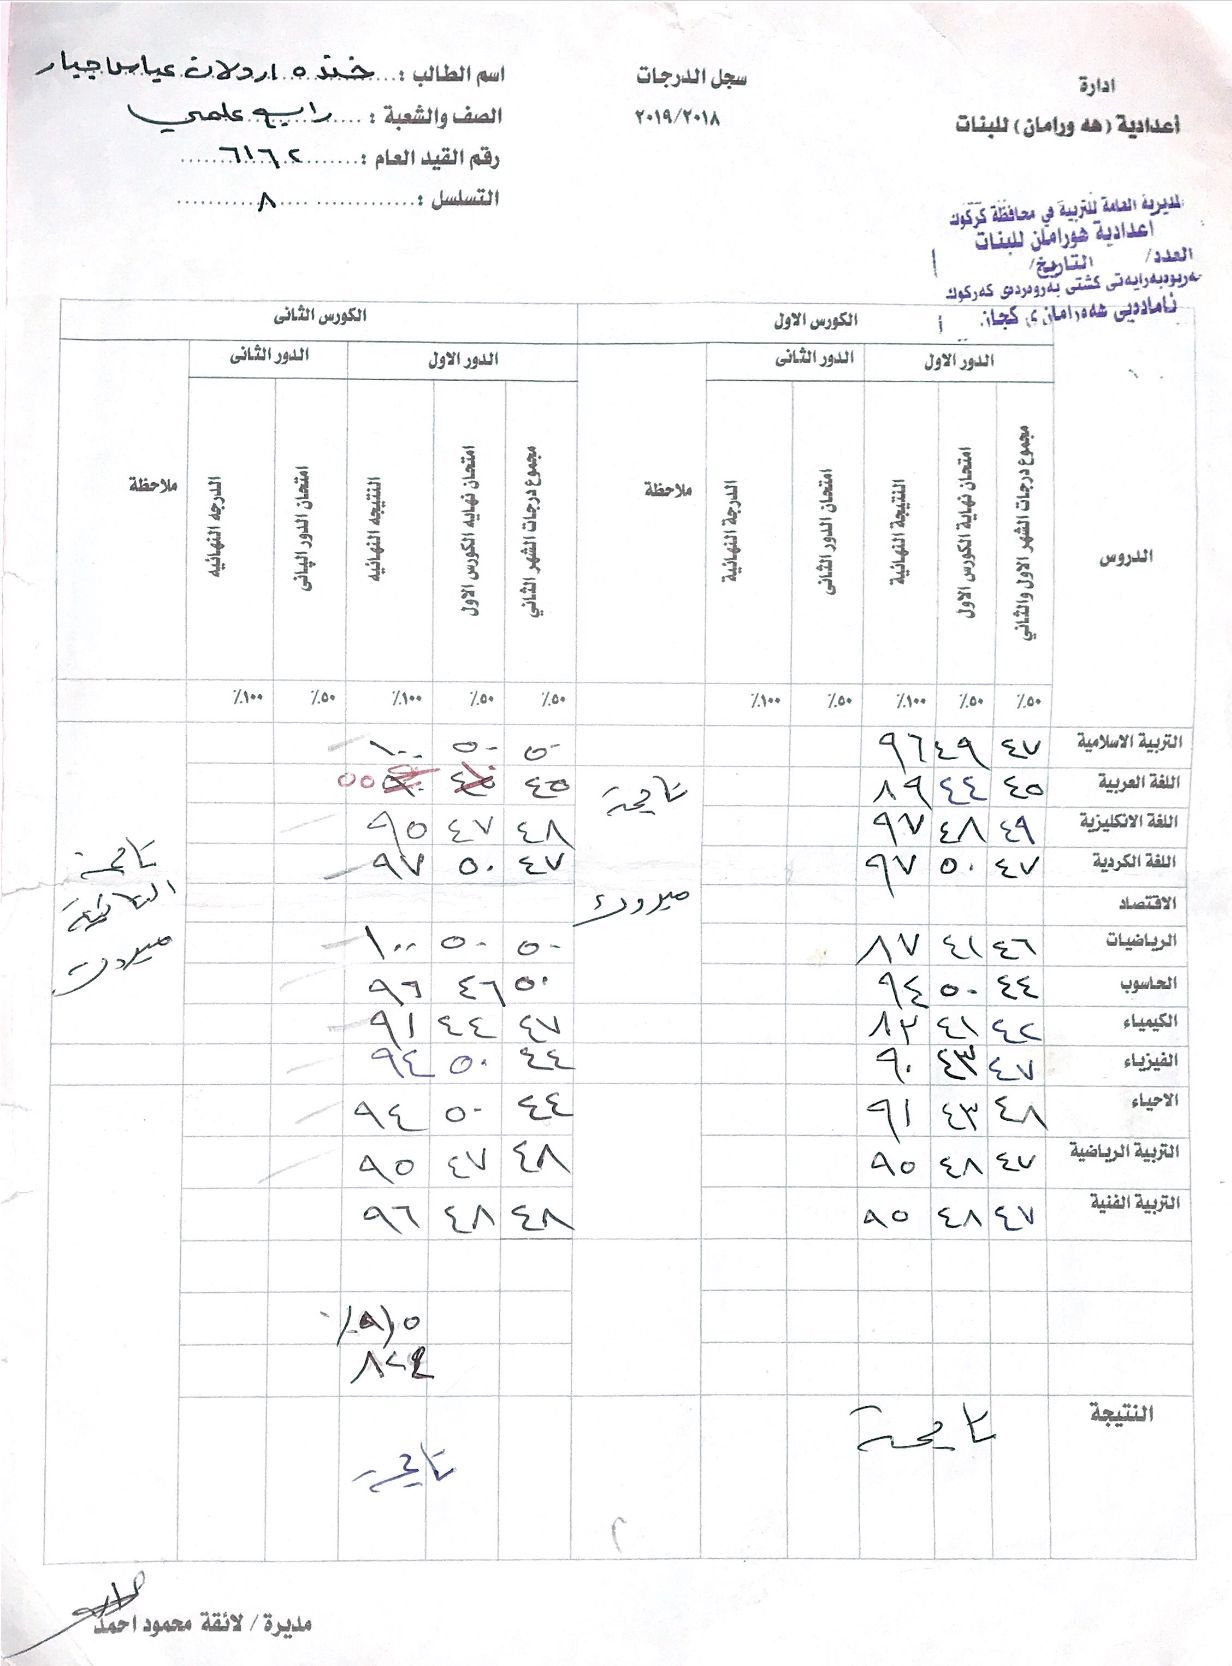 ادارة
أعدادية (هه ورامان) للبنات
سجل الدرجات
٢٠١٩/٢٠١٨
اسم الطالب : خنده اردلان عباس جبار
الصف والشعبة : رابع علمي
رقم القيد العام : ٦١٦٢
التسلسل : ٨
لمديرية العامة للتربية في محافظة كركوك
اعدادية هورامان للبنات
العدد/ التاريخ/
كشتي بەروەردەى كەركوك
الكورس الاول الكورس الثانى
الدور الاول الدور الثانى الدور الاول الدور الثانى
الدروس مجموع درجات الشهر الاول والثاني امتحان نهاية الكورس الاول النتيجة النهائية امتحان الدور الثانى الدرجة النهائية ملاحظة مجموع درجات الشهر الثاني امتحان نهايه الكورس الاول النتيجه النهائيه امتحان الدور الثانى الدرجه النهائيه ملاحظة
٥٠٪ ٥٠٪ ١٠٠٪ ٥٠٪ ١٠٠٪ ٥٠٪ ٥٠٪ ١٠٠٪ ٥٠٪ ١٠٠٪
التربية الاسلامية ٤٧ ٤٩ ٩٦ ٥٠ ٥٠ ١٠٠
اللغة العربية ٤٥ ٤٤ ٨٩ ناجحة ٤٥
اللغة الانكليزية ٤٩ ٤٨ ٩٧ ٤٨ ٤٧ ٩٥
اللغة الكردية ٤٧ ٥٠ ٩٧ ٤٧ ٥٠ ٩٧ ناجحة
الاقتصاد مبروك
الرياضيات ٤٦ ٤١ ٨٧ ٥٠ ٥٠ ١٠٠ مبروك
الحاسوب ٤٤ ٥٠ ٩٤ ٥٠ ٤٦ ٩٦
الكيمياء ٤٢ ٤١ ٨٣ ٤٧ ٤٤ ٩١
الفيزياء ٤٧ ٤٣ ٩٠ ٤٤ ٥٠ ٩٤
الاحياء ٤٨ ٤٣ ٩١ ٤٤ ٥٠ ٩٤
التربية الرياضية ٤٧ ٤٨ ٩٥ ٤٨ ٤٧ ٩٥
التربية الفنية ٤٧ ٤٨ ٩٥ ٤٨ ٤٨ ٩٦
النتيجة ناجحة ناجحة
مديرة / لائقة محمود احمد